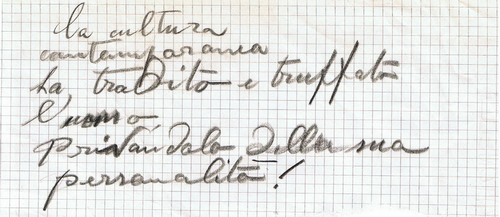 la cultura
contemporanea
ha, tradito e truffato
l'uomo,
privandolo della sua
personalità!